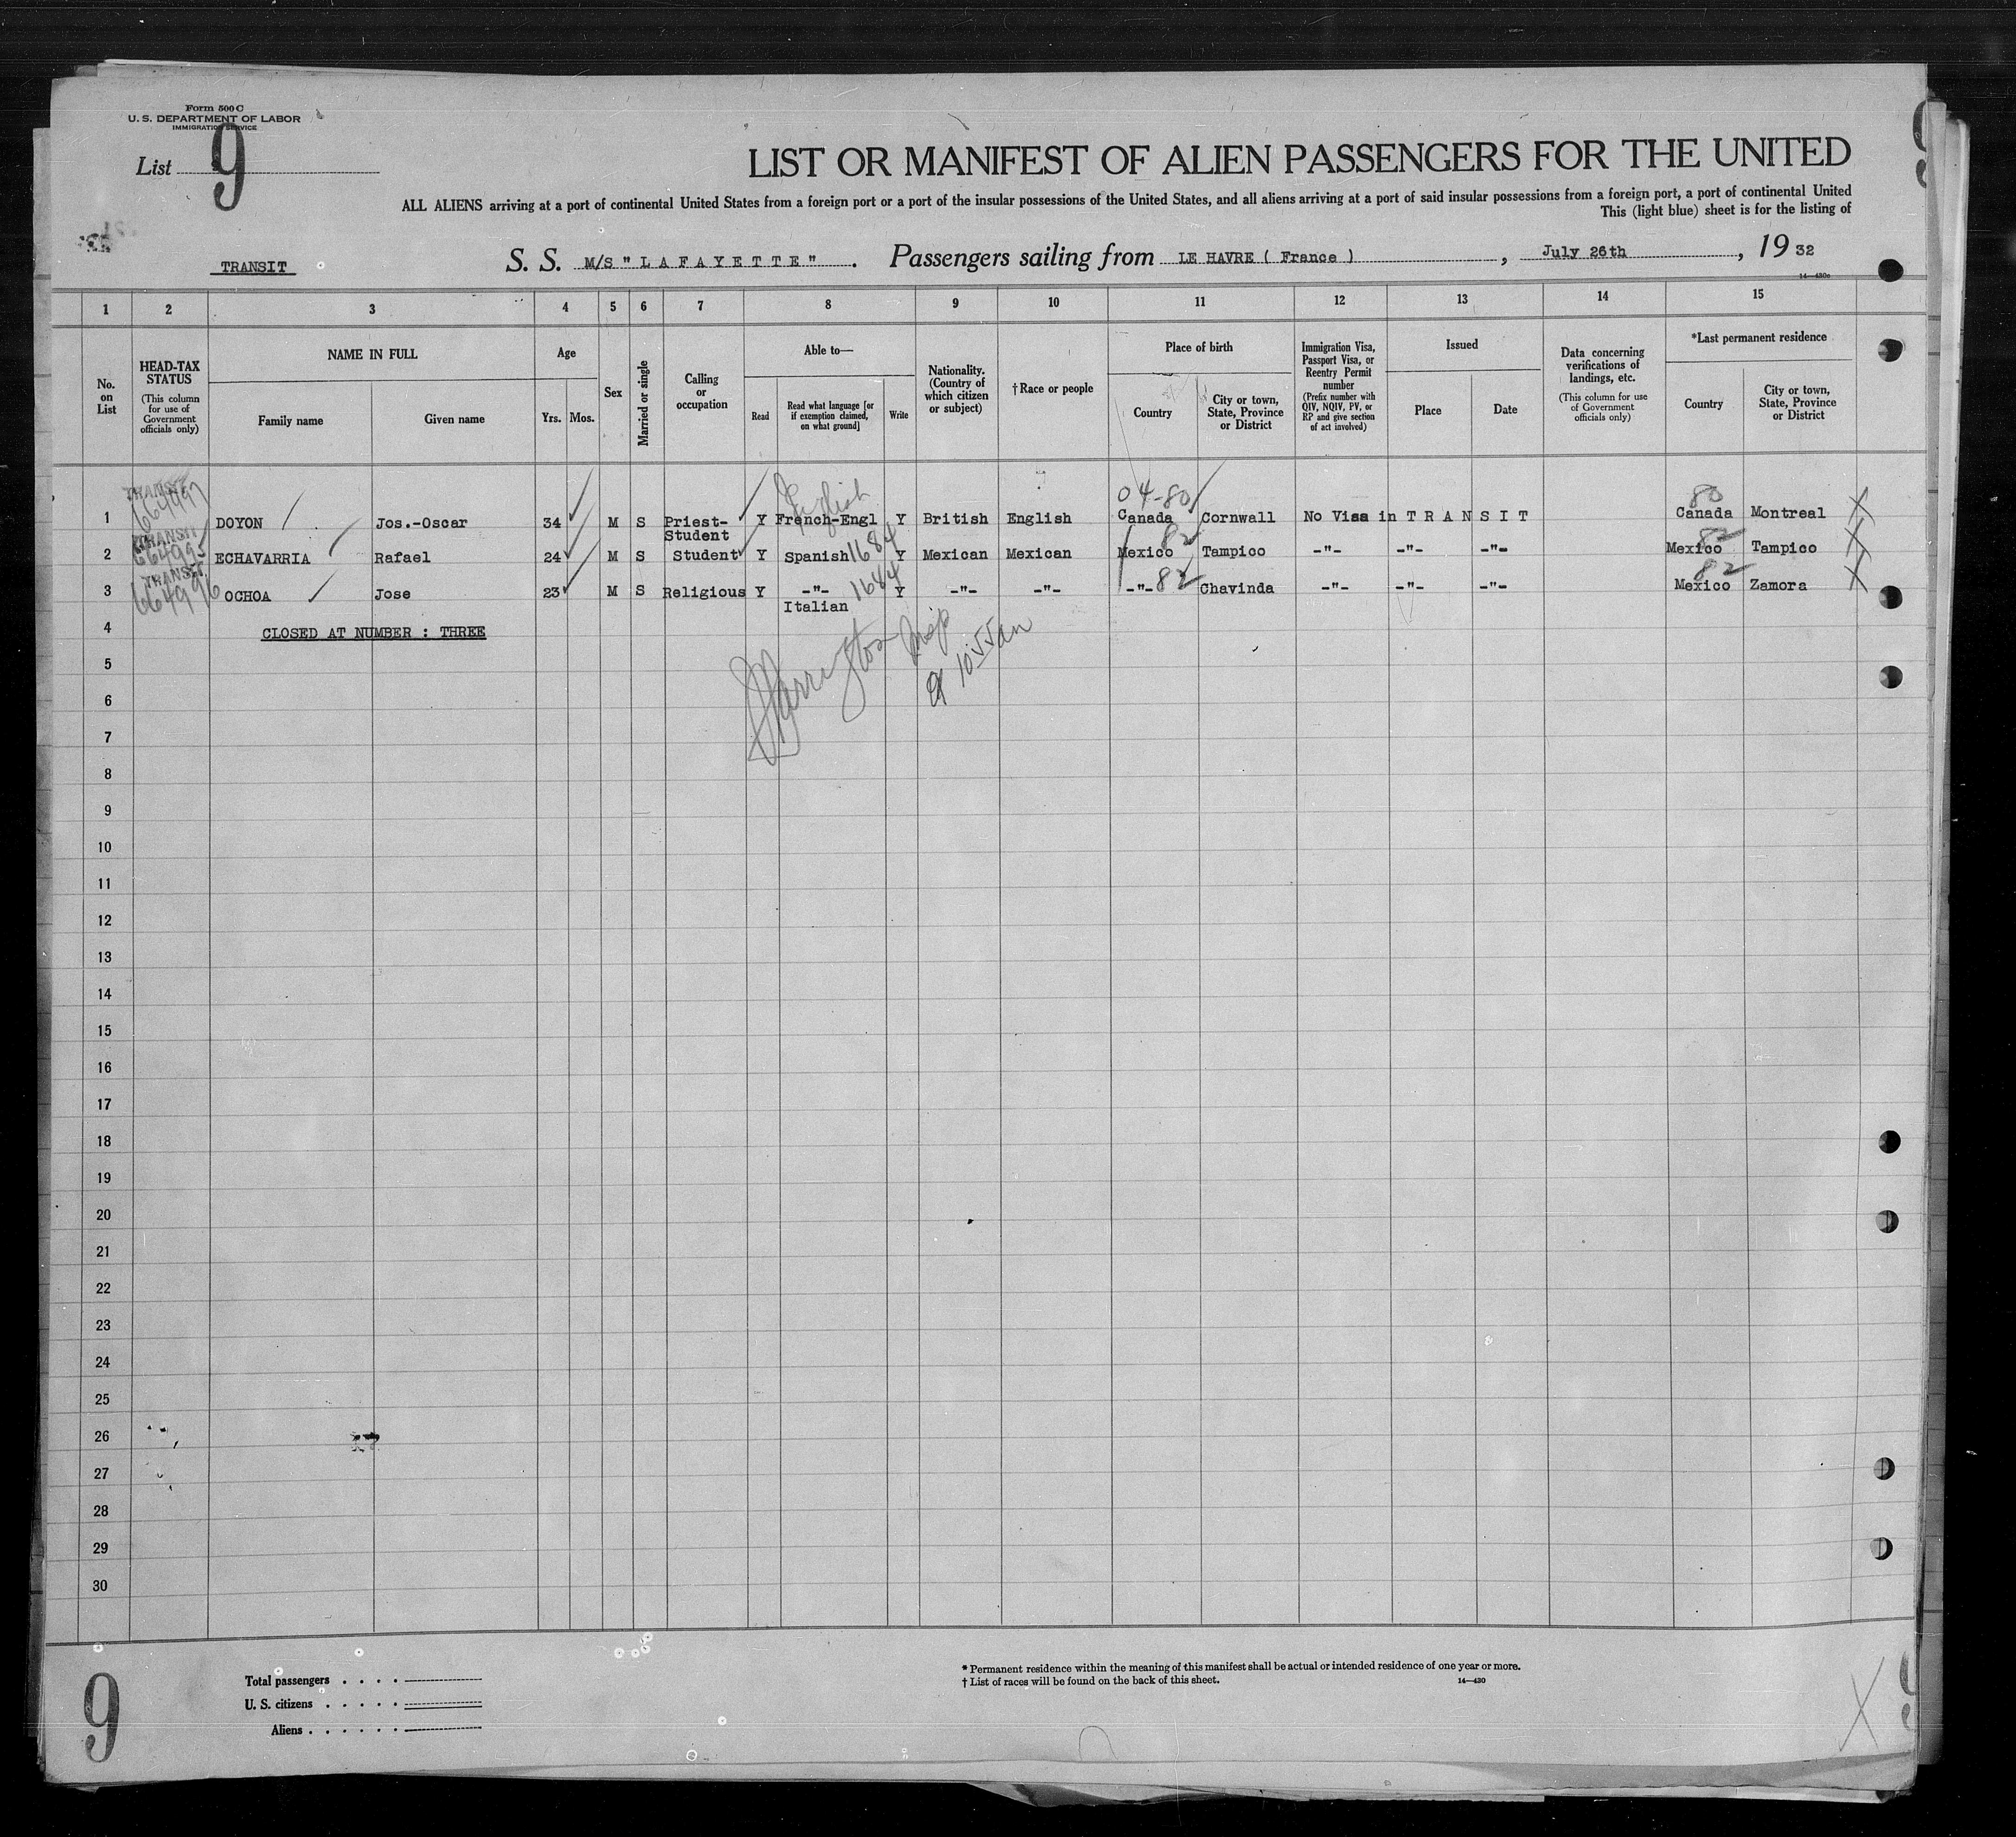 Form 500 C
U. S. DEPARTMENT OF LABOR
IMMIGRATION SERVICE
List 9
LIST OR MANIFEST OF ALIEN PASSENGERS FOR THE UNITED
ALL ALIENS arriving at a port of continental United States from a foreign port or a port of the insular possessions of the United States, and all aliens arriving at a port of said insular possessions from a foreign port, a port of continental United
This (light blue) sheet is for the listing of
TRANSIT
S. S. M/S " L A F A Y E T T E " . Passengers sailing from LE HAVRE ( France ) , July 26th , 19 32
14—430c
1 2 3 4 5 6 7 8 9 10 11 12 13 14 15
No. on List
HEAD-TAX STATUS
(This column for use of Government officials only)
NAME IN FULL
Family name
Given name
Age
Yrs. Mos.
Sex
Married or single
Calling or occupation
Able to—
Read
Read what language [or if exemption claimed, on what ground]
Write
Nationality. (Country of which citizen or subject)
† Race or people
Place of birth
Country
City or town, State, Province or District
Immigration Visa, Passport Visa, or Reentry Permit number
(Prefix number with QIV, NQIV, PV, or RP and give section of act involved)
Issued
Place
Date
Data concerning verifications of landings, etc.
(This column for use of Government officials only)
*Last permanent residence
Country
City or town, State, Province or District
English
04-80 80
TRANSIT 66497
1 DOYON Jos.-Oscar 34 M S Priest- Y French-Engl Y British English Canada Cornwall No Visa in T R A N S I T Canada Montreal
Student
TRANSIT 66495
2 ECHAVARRIA Rafael 24 M S Student Y Spanish 1684 Y Mexican Mexican Mexico 82 Tampico -"- -"- -"- Mexico 82 Tampico
TRANSIT 66496
3 OCHOA Jose 23 M S Religious Y -"- 1684 Y -"- -"- -"- 82 Chavinda -"- -"- -"- Mexico 82 Zamora
Italian
4 CLOSED AT NUMBER : THREE
5
6
7
8
9
10
11
12
13
14
15
16
17
18
19
20
21
22
23
24
25
26
27
28
29
30
Total passengers
U. S. citizens
Aliens
* Permanent residence within the meaning of this manifest shall be actual or intended residence of one year or more.
† List of races will be found on the back of this sheet.
14—430
9